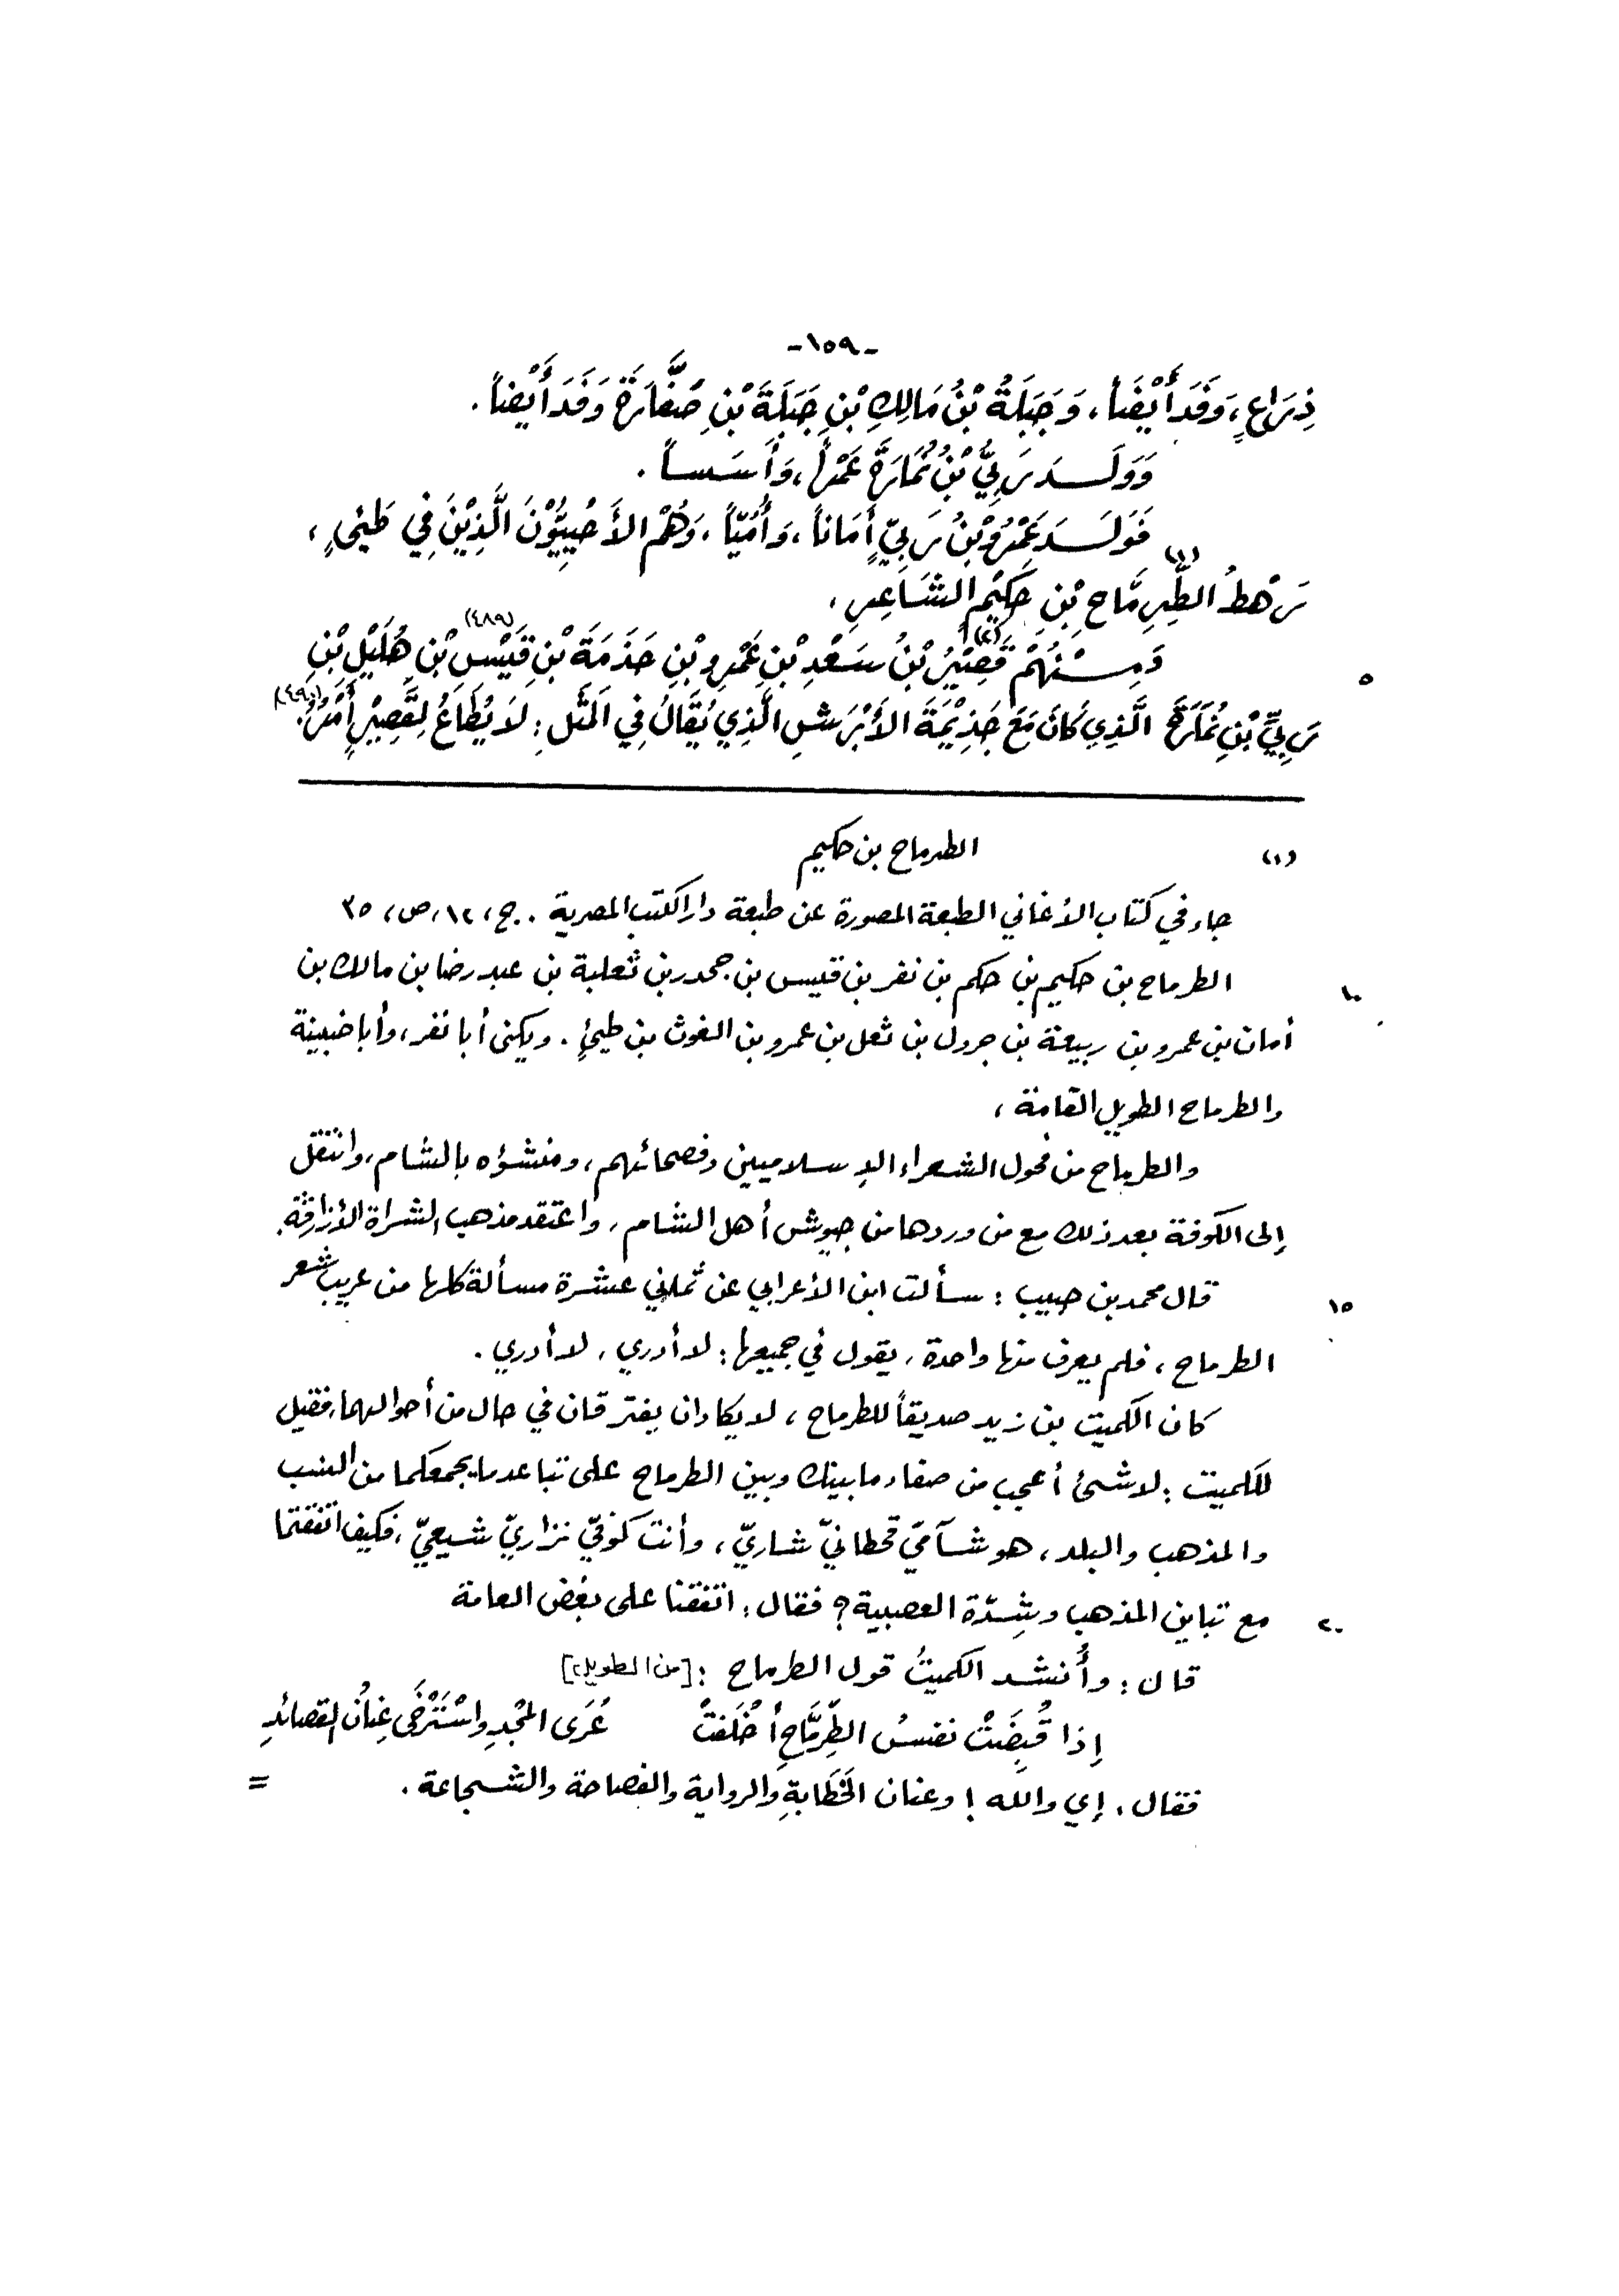 -١٥٩-
ذِرَاعٍ، وَفَدَ أَيْضَاً، وَجَبَلَةُ بْنُ مَالِكِ بْنِ جَبَلَةَ بْنِ صَفَّارَةَ وَفَدَ أَيْضاً.
وَوَلَدَ رَبِيُّ بْنُ نُمَارَةَ عَمْراً، وَأَسَساً.
فَوَلَدَ عَمْرُو بْنُ رَبِيٍّ أَمَاناً، وَأُمَيّاً، وَهُمْ الأَحْيِيُّوْنَ الَّذِيْنَ فِي طَيِّىءٍ،
رَهْطُ الطِّرِمَّاحِ بْنِ حَكِيْمٍ الشَّاعِرِ، (١)
وَمِنْهُمْ قَصِيْرُ (٢) بْنُ سَعْدِ بْنِ عَمْرِو بْنِ جَذَمَةَ بْنِ قَيْسِ بْنِ هُلَيْلِ بْنِ (٤٨٩) ٥
رَبِيِّ بْنِ نُمَارَةَ الَّذِي كَانَ مَعَ جَذِيْمَةَ الأَبْرَشِ الَّذِي يُقَالُ فِي المَثَلِ: لاَ يُطَاعُ لِقَصِيْرٍ أَمْرٌ. (٤٩٠)
(١) الطرماح بن حكيم
جاء في كتاب الأغاني الطبعة المصورة عن طبعة دار الكتب المصرية. ج، ١٢، ص، ٣٥
الطرماح بن حكيم بن حكم بن نفر بن قيس بن جحدر بن ثعلبة بن عبد رضا بن مالك بن ١٠
أمان بن عمرو بن ربيعة بن جرول بن ثعل بن عمرو بن الغوث بن طيئٍ. ويكنى أبا نفر، وأبا ضبينة
والطرماح الطويل القامة،
والطرماح من فحول الشعراء الإسلاميين وفصحائهم، ومنشؤه بالشام، وانتقل
إلى الكوفة بعد ذلك مع من وردها من جيوش أهل الشام، واعتقد مذهب الشراة الأزارقة.
قال محمد بن حبيب: سألت ابن الأعرابي عن ثماني عشرة مسألة كلها من غريب شعر ١٥
الطرماح، فلم يعرف منها واحدة، يقول في جميعها: لا أدري، لا أدري.
كان الكميت بن زيد صديقاً للطرماح، لا يكادان يفترقان في حال من أحوالهما، فقيل
للكميت: لا شئ أعجب من صفاء ما بينك وبين الطرماح على تباعد ما يجمعكما من النسب
والمذهب والبلد، هو شآميّ قحطانيّ شاريّ، وأنت كوفيّ نزاريّ شيعيّ، فكيف اتفقتما
مع تباين المذهب وشِدّة العصبية؟ فقال: اتفقنا على بغض العامة ٢٠
قال: وأُنشد الكميتُ قول الطرماح: [من الطويل]
إذا قُبِضَتْ نفسُ الطِّرِمَّاحِ أخْلَقتْ عُرَى المَجْدِ واسْتَرْخَى عِنانُ القصائدِ
فقال، إي والله! وعنان الخَطَابةِ والرواية والفصاحة والشجاعة. =